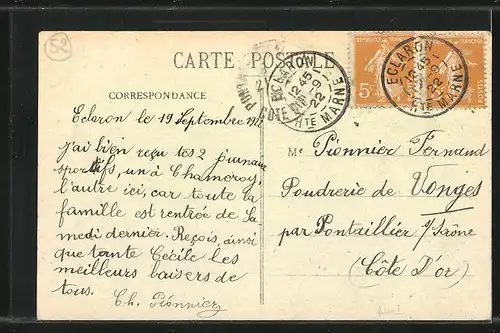 52
CARTE POSTALE
CORRESPONDANCE
Eclaron le 19 Septembre 192
J'ai bien reçu tes 2 journaux
sportifs, un à Chamcroy,
l'autre ici, car toute la
famille est rentrée de Sa
medi dernier. Reçois, ainsi
que tante Cécile les
meilleurs baisers de
tous.
Ch. Pionnier
ECLARON
12 45
19-9
22
HTE MARNE
CÔTE D'OR
REPUBLIQUE FRANÇAISE
5c
ECLARON
12 45
19-9
22
HTE MARNE
Mr Pionnier Fernand
Poudrerie de Vonges
par Pontaillier s/Saône
(Côte D'or)